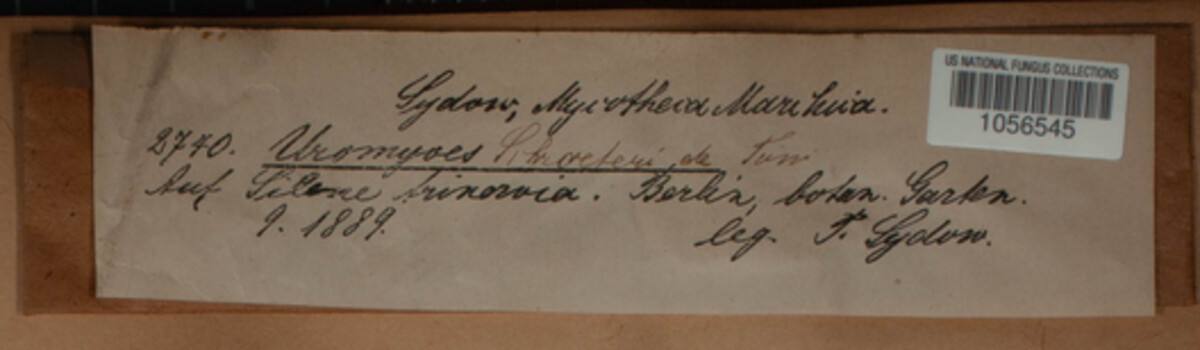 US NATIONAL FUNGUS COLLECTIONS
1056545
Sydow, Mycotheca Marchica.
2740. Uromyces Schroeteri de Toni
Auf Silene trinervia. Berlin, botan. Garten.
9. 1889. leg. P. Sydow.